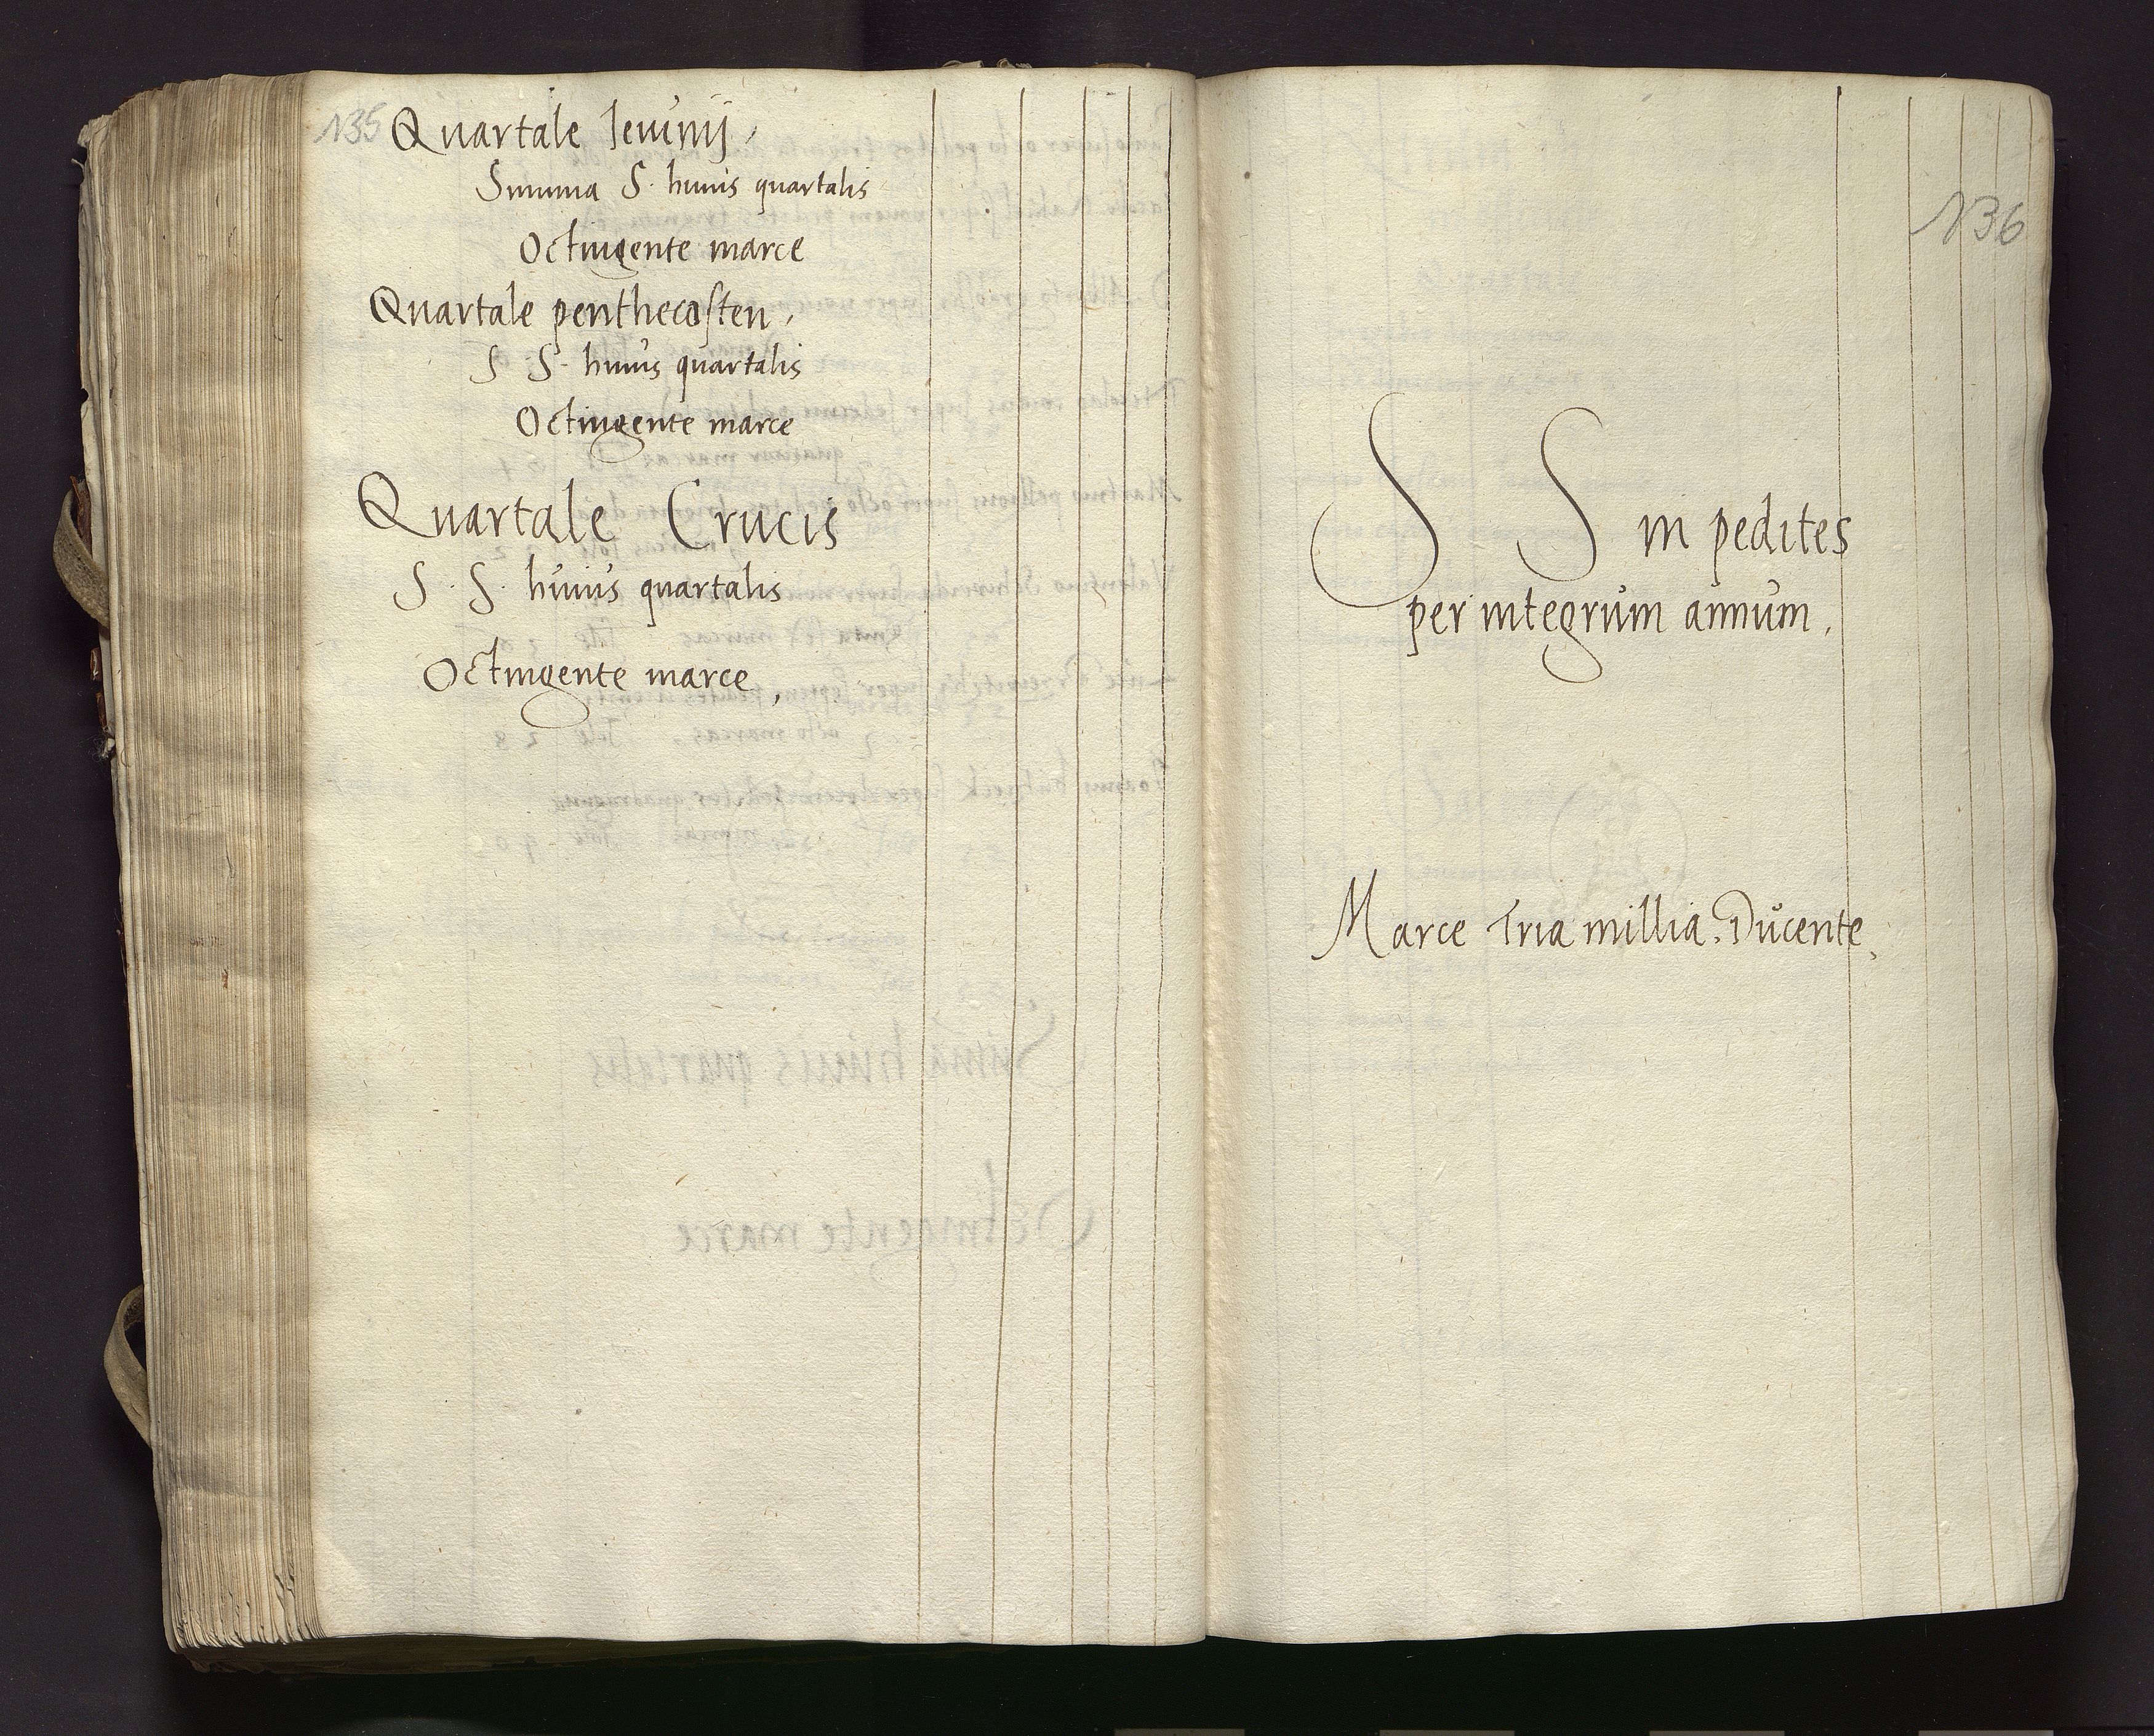 135
Quartale Ieiunij,
Summa S. huius quartalis
Octingente marce
Quartale penthecosten,
S S. huius quartalis
Octingente marce
Quartale Crucis
S. S. huius quartalis
Octingente marce,
136
S S in pedites
per integrum annum,
Marce Tria millia. Ducente,